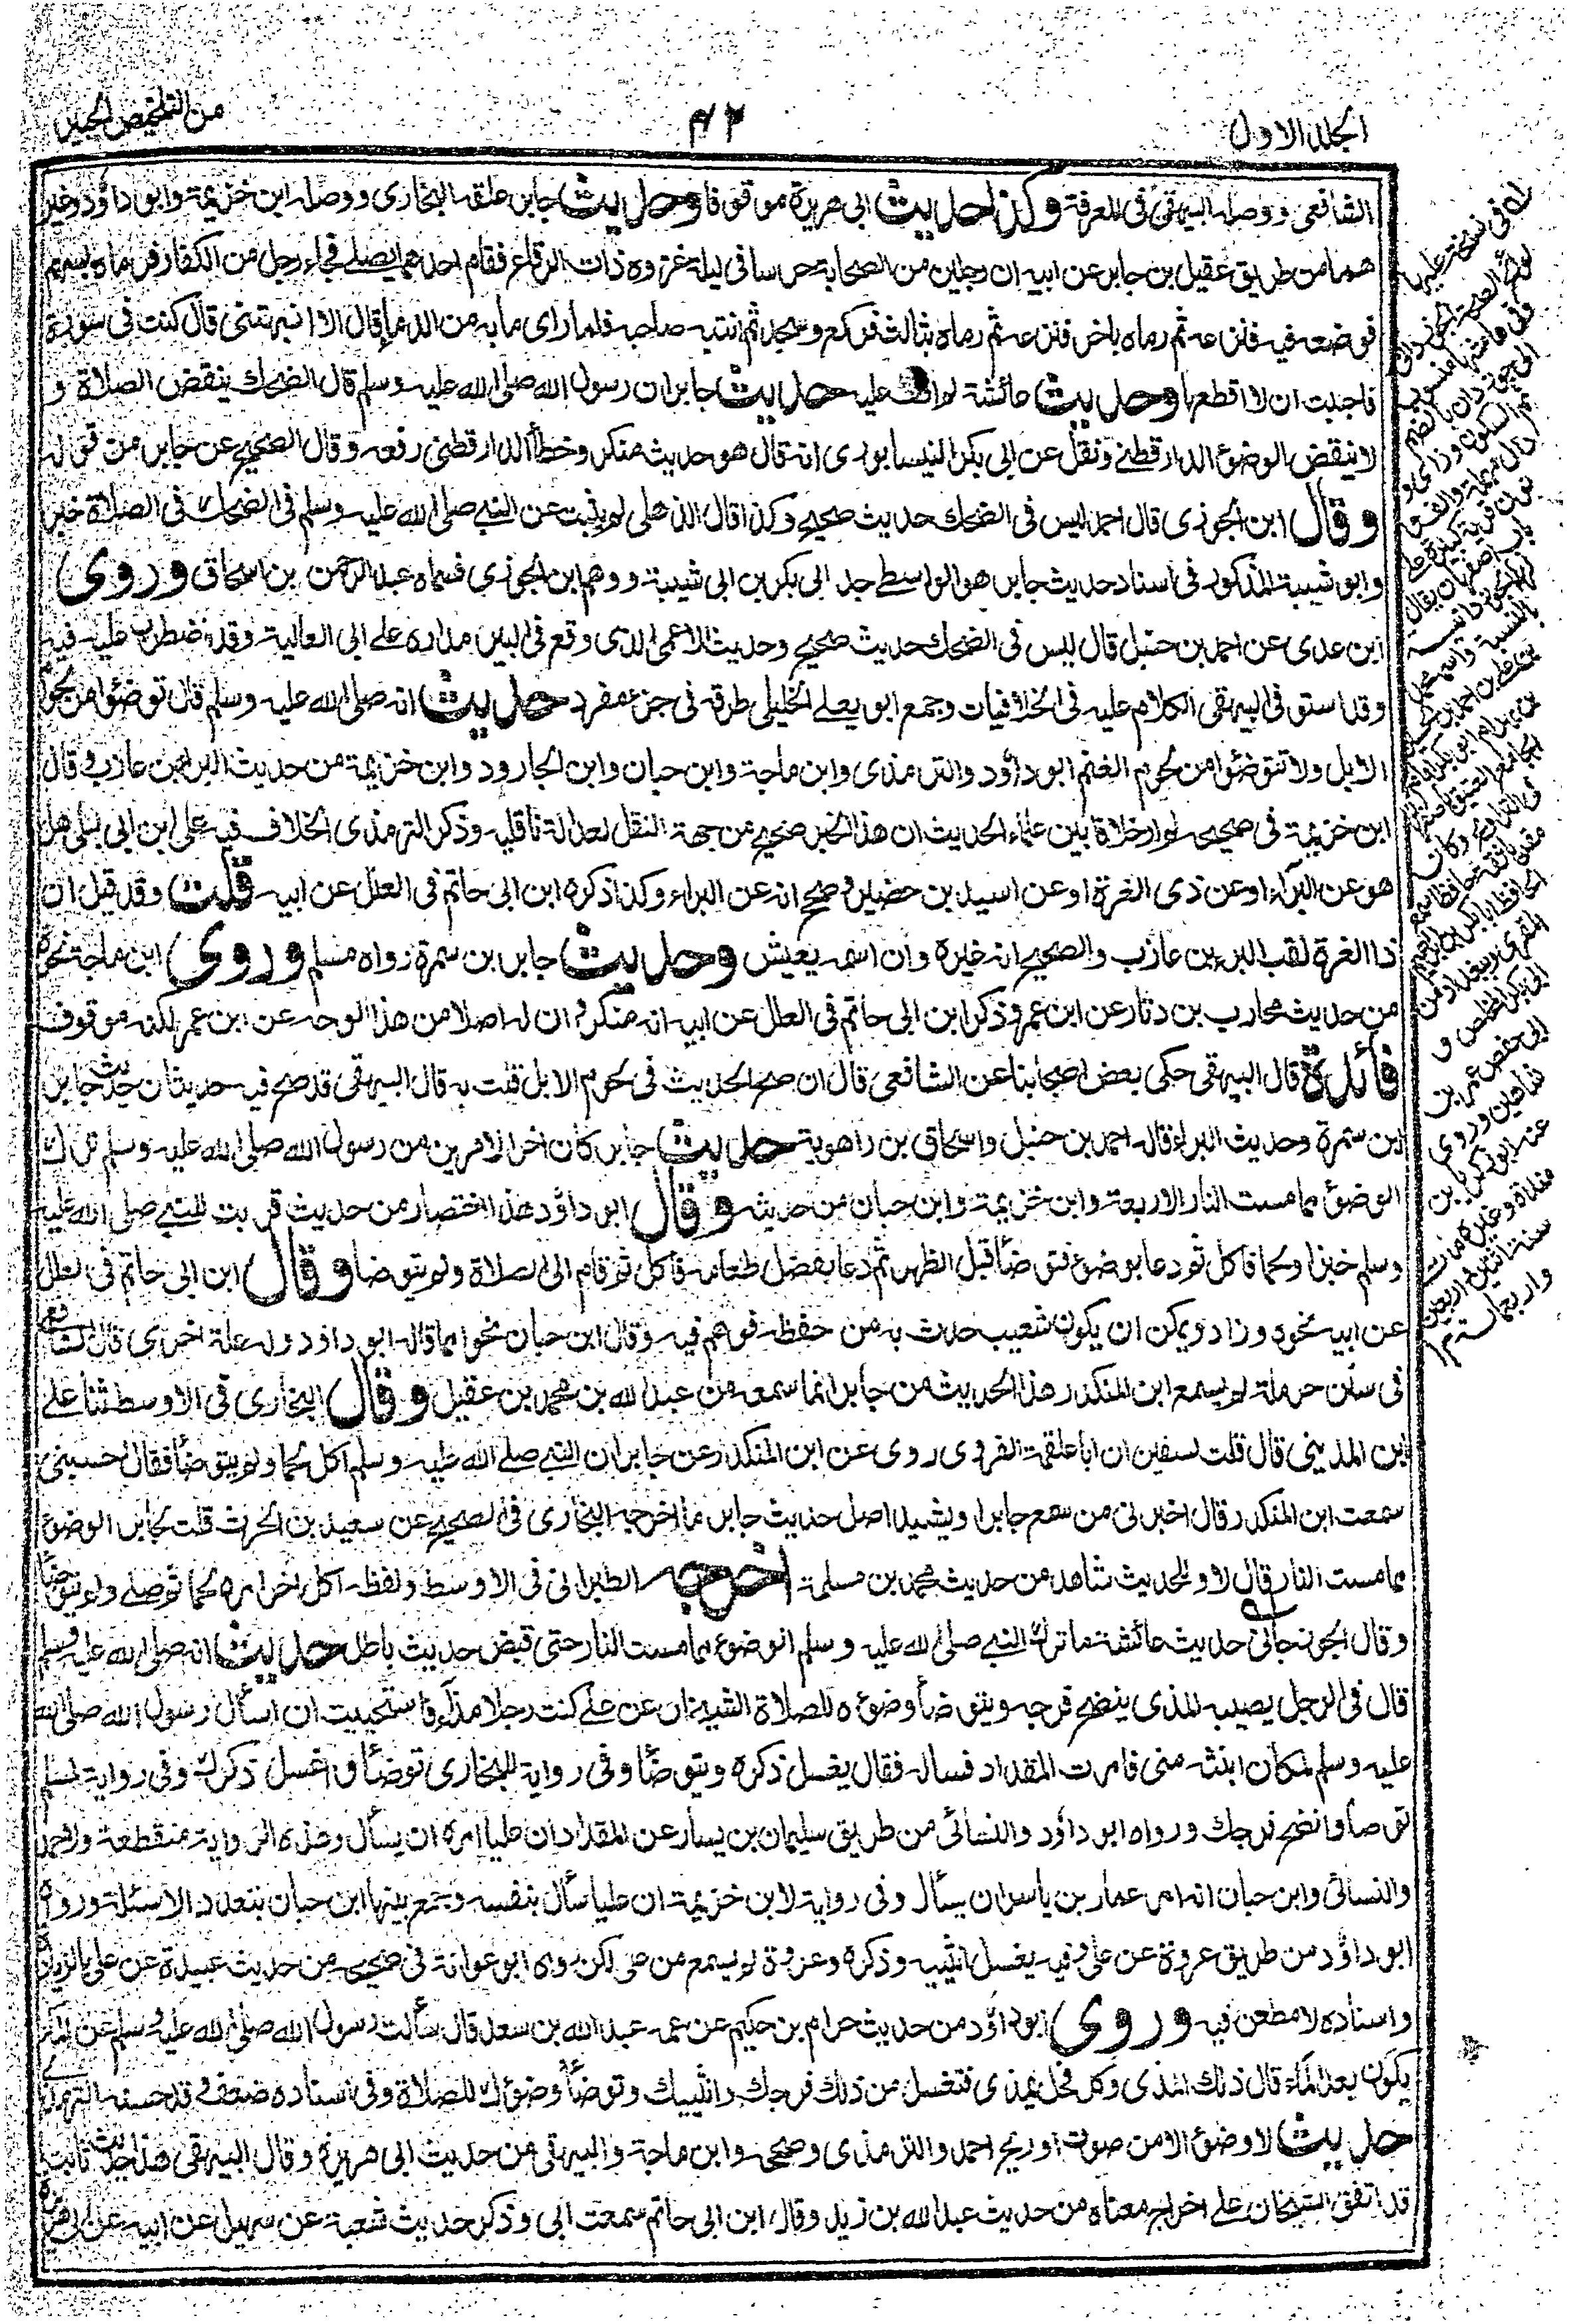 المجلد الاول
٤٣
من التلخيص الحبير
الشافعي ووصله البيهقي في المعرفة وكذا حديث ابي هريرة موقوفا وحديث جابر علقه البخاري ووصله ابن خزيمة وابو داؤد وغير
هما من طريق عقيل بن جابر عن ابيه ان رجلين من الصحابة حرسا في ليلة غزوه ذات الرقاع فقام احدهما يصلے فجاء رجل من الكفار فرماه بسهم
فوضعه فيه فنزعه ثم رماه باخر فنزعه ثم رماه بثالث فركع وسجد ثم انتبه صاحبه فلما راى ما به من الدماء قال الا انبهتني قال كنت في سورة
فاحببت ان لا اقطعها وحديث عائشة لم اقف عليه حديث جابر ان رسول الله صلى الله عليه وسلم قال الضحك ينقض الصلاة و
لا ينقض الوضوء الدارقطنے ونقل عن ابي بكر النيسابوري انه قال هو حديث منكر وخطأ الدارقطني رفعه وقال الصحيح عن جابر من قوله
وقال ابن الجوزي قال احمد ليس في الضحك حديث صحيح وكذا قال الذهلي لم يثبت عن النبے صلى الله عليه وسلم في الضحك في الصلاة خبر
وابو شيبة المذكور في اسناد حديث جابر هو الواسطے جد ابي بكر بن ابي شيبة ووهم ابن الجوزي فسماه عبد الرحمن بن اسحاق وروى
ابن عدي عن احمد بن حنبل قال ليس في الضحك حديث صحيح وحديث الاعمى الذي وقع في البير مداره علے ابي العالية وقد اضطرب عليه فيه
وقد استوفى البيهقي الكلام عليه في الخلافيات وجمع ابو يعلے الخليلي طرقه في جزء مفرد حديث انه صلى الله عليه وسلم قال توضئوا من لحوم
الابل ولا تتوضئوا من لحوم الغنم ابو داؤد والترمذي وابن ماجة وابن حبان وابن الجارود وابن خزيمة من حديث البراء بن عازب وقال
ابن خزيمة في صحيحه لم ار خلافا بين علماء الحديث ان هذا الخبر صحيح من جهة النقل لعدالة ناقليه وذكر الترمذي الخلاف فيه على ابن ابي ليلى هل
هو عن البراء او عن ذي الغرة او عن اسيد بن حضير وصحح انه عن البراء وكذا ذكره ابن ابي حاتم في العلل عن ابيه قلت وقد قيل ان
ذا الغرة لقب البراء بن عازب والصحيح انه غيره وان اسمه يعيش وحديث جابر بن سمرة رواه مسلم وروى ابن ماجة نحوه
من حديث محارب بن دثار عن ابن عمر وذكر ابن ابي حاتم في العلل عن ابيه انه منكر وان له اصلا من هذا الوجه عن ابن عمر لكنه موقوف
فائدة قال البيهقي حكى بعض اصحابنا عن الشافعي قال ان صح الحديث في لحوم الابل قلت به قال البيهقي قد صح فيه حديثان حديث جابر
ابن سمرة وحديث البراء قاله احمد بن حنبل واسحاق بن راهوية حديث جابر كان اخر الامرين من رسول الله صلى الله عليه وسلم ترك
الوضوء مما مست النار الاربعة وابن خزيمة وابن حبان من حديثه وقال ابو داؤد هذا اختصار من حديث قربت للنبے صلى الله عليه
وسلم خبزا ولحما فاكل ثم دعا بوضوء فتوضأ قبل الظهر ثم دعا بفضل طعامه فاكل ثم قام الى الصلاة ولم يتوضا وقال ابن ابي حاتم في العلل
عن ابيه نحوه وزاد ويمكن ان يكون شعيب حدث به من حفظه فوهم فيه وقال ابن حبان نحوا مما قاله ابو داؤد وله علة اخرى قال الشافعي
في سنن حرملة لم يسمع ابن المنكدر هذا الحديث من جابر انما سمعه من عبد الله بن محمد بن عقيل وقال البخاري في الاوسط ثنا علے
ابن المديني قال قلت لسفين ان ابا علقمة الفروي روى عن ابن المنكدر عن جابر ان النبے صلے الله عليه وسلم اكل لحما ولم يتوضأ فقال احسبني
سمعت ابن المنكدر قال اخبرني من سمع جابرا ويشيد اصل حديث جابر ما اخرجه البخاري في الصحيح عن سعيد بن الحرث قلت لجابر الوضوء
مما مست النار قال لا وللحديث شاهد من حديث محمد بن مسلمة اخرجه الطبراني في الاوسط ولفظه اكل اخر امره لحما ثم صلے ولم يتوضأ
وقال الجوزجاني حديث عائشة ما ترك النبے صلى الله عليه وسلم الوضوء مما مست النار حتى قبض حديث باطل حديث انه صلى الله عليه وسلم
قال في الرجل يصيبه المذي ينضح فرجه ويتوضأ وضوءه للصلاة الشيخان عن علے كنت رجلا مذاء فاستحييت ان اسأل رسول الله صلى الله
عليه وسلم لمكان ابنته مني فامرت المقداد فساله فقال يغسل ذكره ويتوضأ وفي رواية للبخاري توضأ واغسل ذكرك وفي رواية لمسلم
توضأ وانضح فرجك ورواه ابو داؤد والنسائي من طريق سليمان بن يسار عن المقداد ان عليا امره ان يسأل وهذه الرواية منقطعة ولاحمد
والنسائي وابن حبان انه امر عمار بن ياسر ان يسأل وفي رواية لابن خزيمة ان عليا سأل بنفسه وجمع بينها ابن حبان بتعدد الاسئلة ورواه
ابو داؤد من طريق عروة عن علي وفيه يغسل انثييه وذكره وعروة لم يسمع من علي لكن رواه ابو عوانة في صحيحه من حديث عبيدة عن علي بالزيادة
واسناده لا مطعن فيه وروى ابو داؤد من حديث حرام بن حكيم عن عمه عبد الله بن سعد قال سألت رسول الله صلى الله عليه وسلم عن الماء
يكون بعد الماء قال ذلك المذي وكل فحل يمذي فتغسل من ذلك فرجك وانثييك وتوضأ وضوءك للصلاة وفي اسناده ضعف وقد حسنه الترمذي
حديث لا وضوء الا من صوت او ريح احمد والترمذي وصححه وابن ماجة والبيهقي من حديث ابي هريرة وقال البيهقي هذا حديث ثابت
قد اتفق الشيخان علے اخراج معناه من حديث عبد الله بن زيد وقال ابن ابي حاتم سمعت ابي وذكر حديث شعبة عن سهيل عن ابيه عن ابي هريرة
الى جوزدان بالضم
ثم السكون وزاي و
دال مهملة والف و
نون قرية كبيرة على
باب اصفهان يقال
بن علے بن احمد بن
بن بهرام ابو بكر
ابي بكر المخلص و
ابي حفص عمر بن
شاهين وروى
عنه ابو زكريا بن
مندة وغيره مات
سنة اثنتين واربعين
واربعمائة ١٢